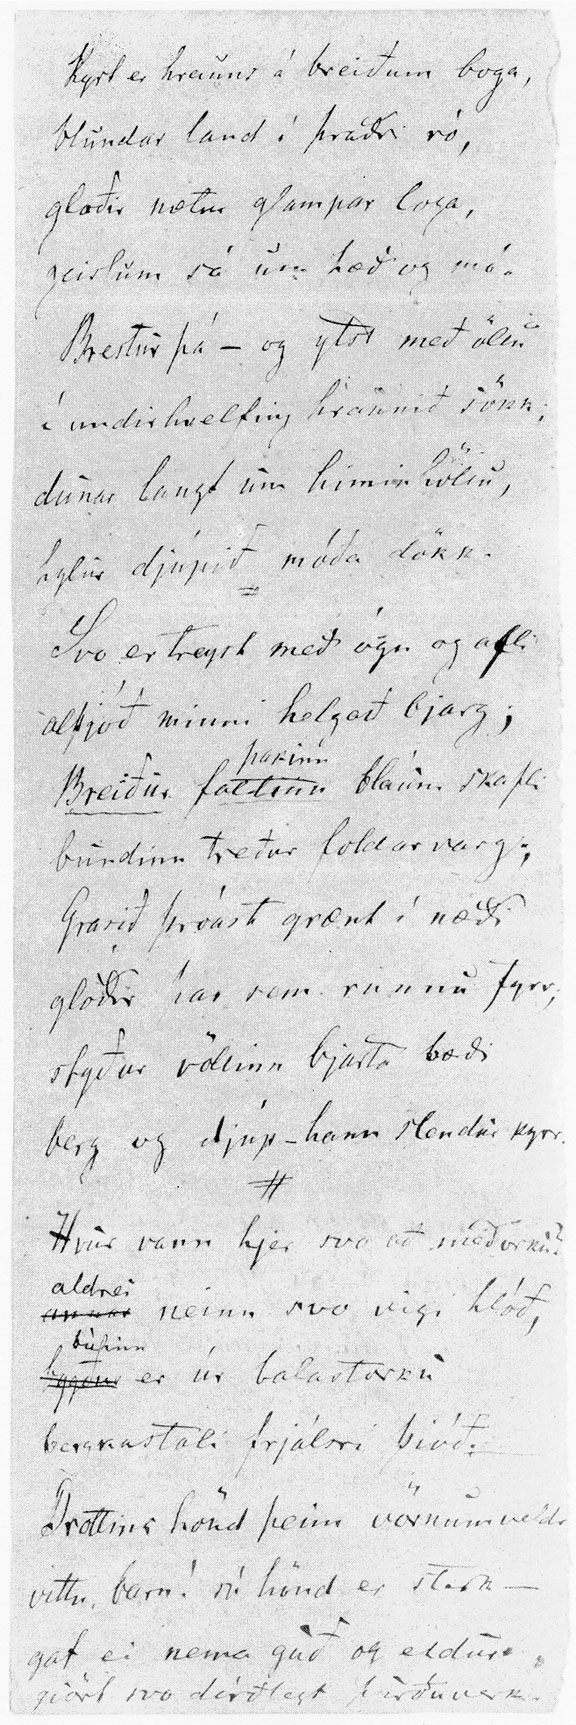 Kyrt er hrauns á breiðum boga,
blundar land í þráðri ró,
glaðir nætur glampar loga,
geislum sá um hæð og mó.
Brestur þá – og ytst með öllu
í undirhvelfing hraunið sökk;
dunar langt um himinhöllu,
hylur djúpið móða dökk.
Svo er treyst með ógn og afli
alþjóð minni helgað bjarg;
þakinn
Breiður bláum skafli
bundinn treður foldarvarg;
Grasið þróast grænt í næði
glóðir þar sem runnu fyrr;
styður völlinn bjarta bæði
berg og djúp – hann stendur kyrr.
Hvur vann hjer svo að með orku?
aldrei
annar neinn svo vígi hlóð,
búinn
byggður er úr bálastorku
bergkastali frjálsri þjóð.
Drottins hönd þeim vörnum veldr
vittu, barn! sú hönd er sterk –
gat ei nema guð og eldur
gjört svo dýrðlegt furðuverk.